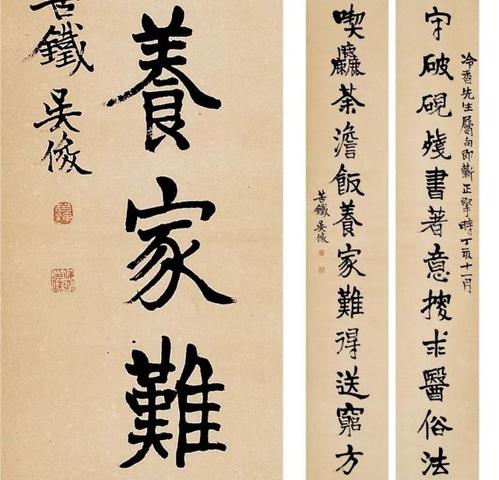 冷香先生屬句即蘄正擘時丁亥十一月
守破硯殘書著意搜求醫俗法
喫麤茶澹飯養家難得送窮方
苦鐵吳俊
養家難
苦鐵吳俊